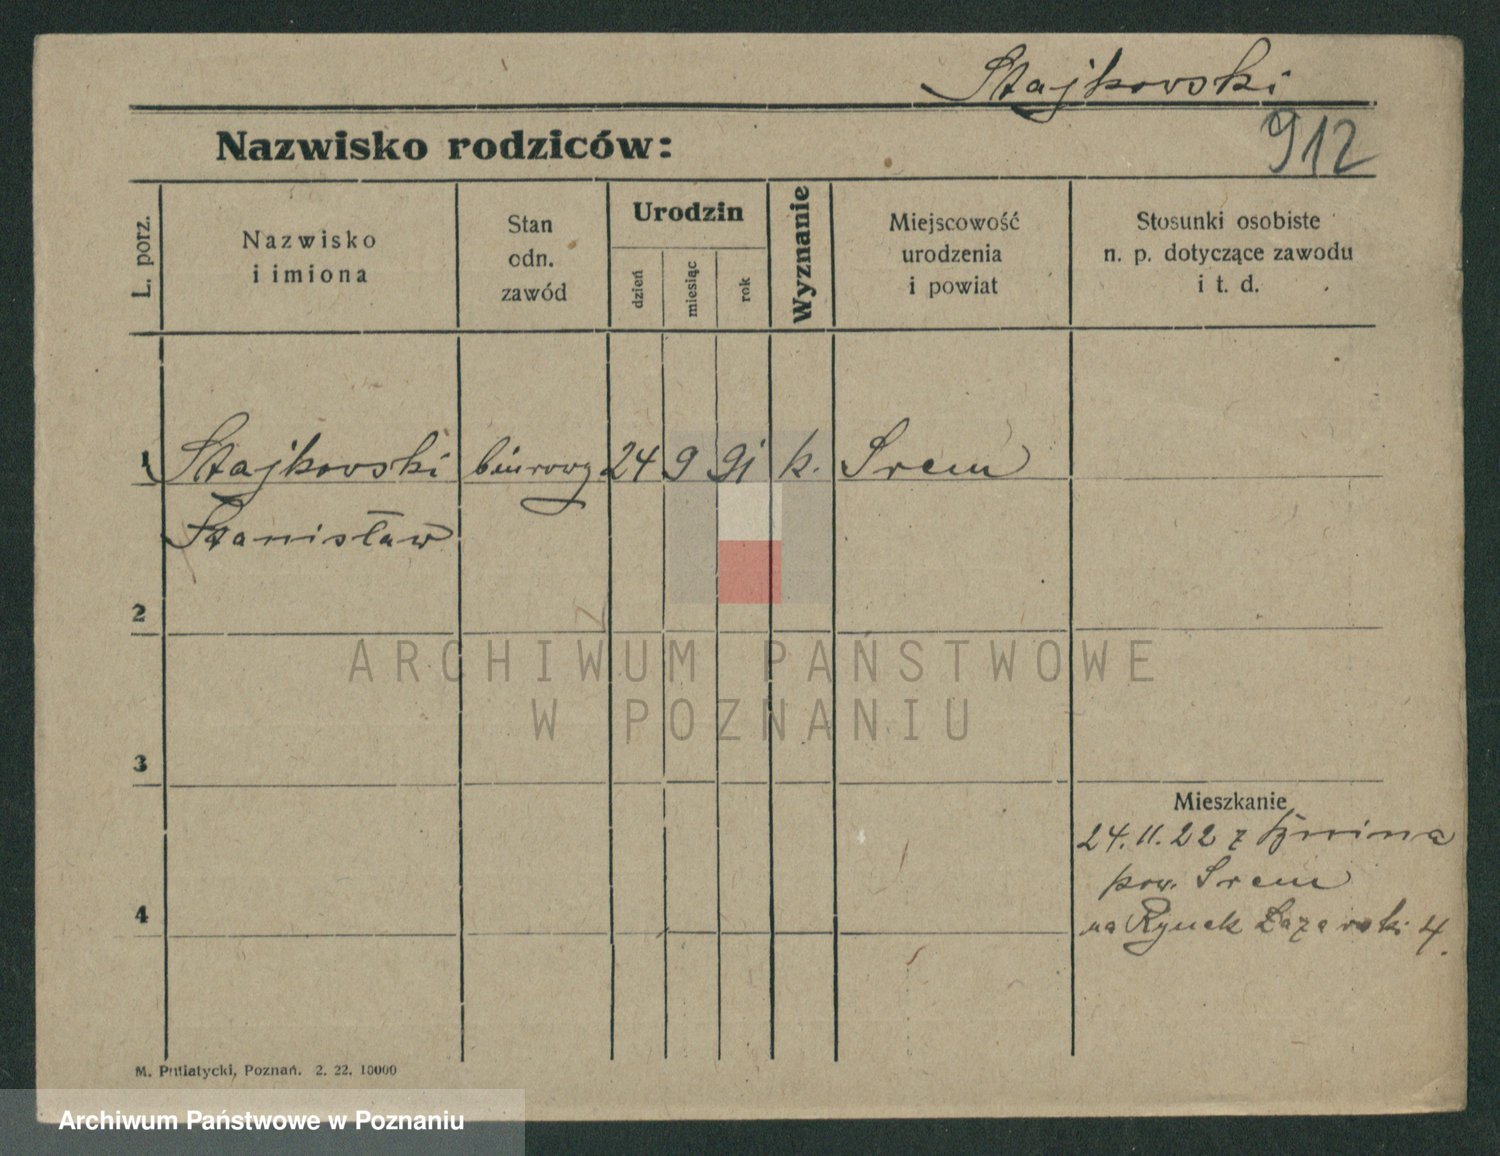 Stajkovski
912
Nazwisko rodziców:
L. porz.
Nazwisko
i imiona
Stan
odn.
zawód
Urodzin
dzień
miesiąc
rok
Wyznanie
Miejscowość
urodzenia
i powiat
Stosunki osobiste
n. p. dotyczące zawodu
i t. d.
1 Stajkovski biurowy 24 9 91 k. Srem
Stanisław
2
ARCHIWUM PAŃSTWOWE
W POZNANIU
3
Mieszkanie
24.11.22 z
pow. Srem
4
na Rynek Łazarski 4.
M. Putiatycki, Poznań. 2. 22. 10000
Archiwum Państwowe w Poznaniu